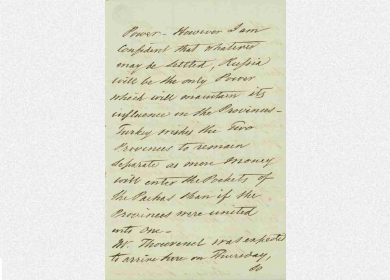 Power - However I am
Confident that whatever
may be settled, Russia
will be the only Power
which will maintain its
influence in the Provinces -
Turkey wishes the two
Provinces to remain
Separate as more money
will enter the Pockets of
the Pachas than if the
Provinces were united
into one -
Mr. Thouvenel was expected
to arrive here on Thursday,
so